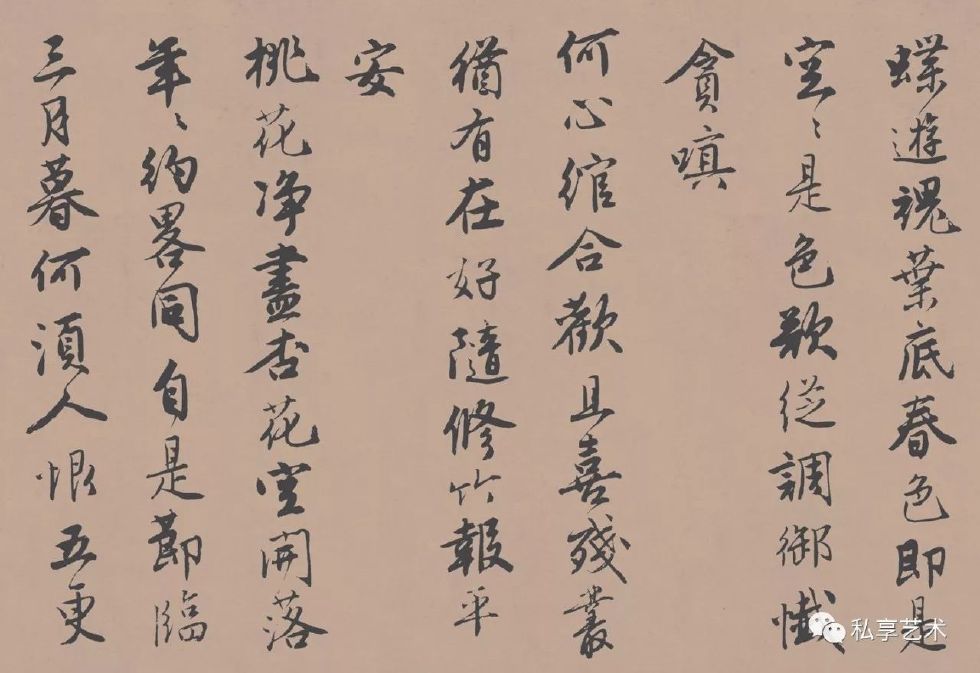 蝶遊魂葉底春色即是
空〻是色欲從調御懺
貪嗔
何心綰合歡且喜殘叢
猶有在好隨修竹報平
安
桃花淨盡杏花空開落
年〻約畧同自是節臨
三月暮何須人恨五更
私享艺术